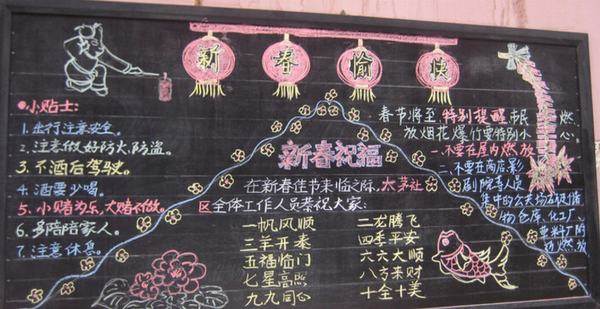 新春愉快
小贴士：
1.出行注意安全。
2.注意做好防火,防盗。
3.不酒后驾驶。
4.酒要少喝。
5.小赌为乐,大赌不做。
6.多陪陪家人。
7.注意休息。
新春祝福
在新春佳节来临之际,太茅社
区全体工作人员恭祝大家:
一帆风顺 二龙腾飞
三羊开泰 四季平安
五福临门 六六大顺
七星高照 八方来财
九九同心 十全十美
春节将至 特别提醒 市民 燃
放烟花爆竹要特别小心。
一.不要在屋内燃放
二.不要在商店,影
剧院等人员
集中的公共场所
仓库,化工厂、
燃放